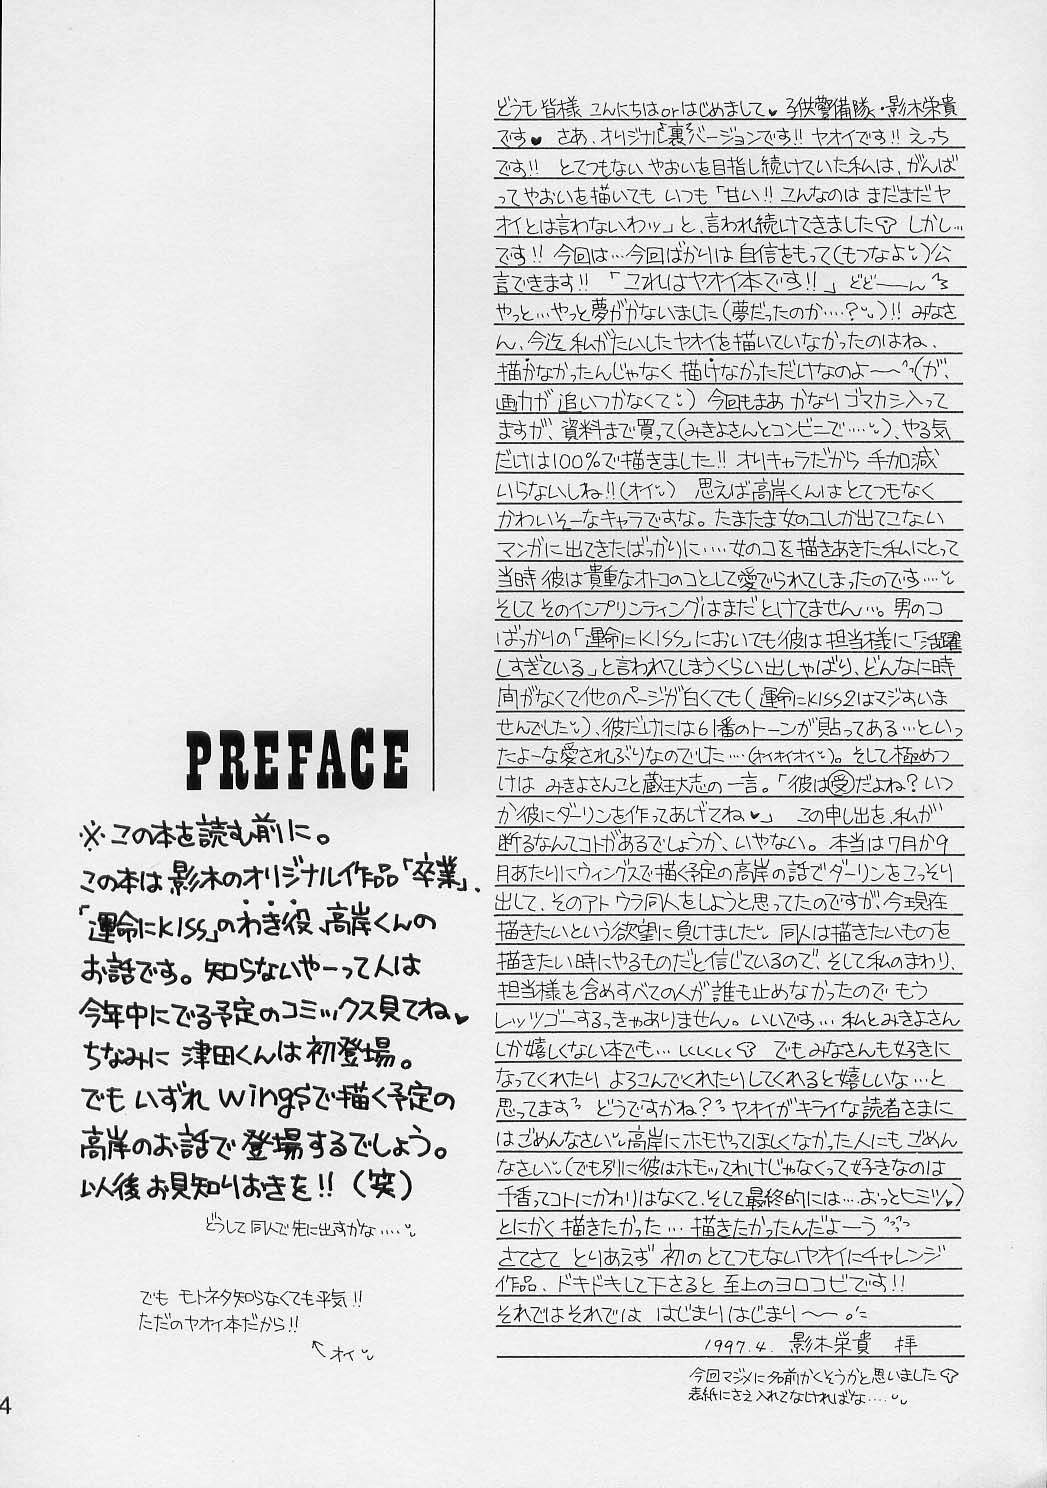 PREFACE
※この本を読む前に。
この本は影木のオリジナル作品「卒業」、
「運命にKISS」のわき役、高岸くんの
お話です。知らないやーって人は
今年中にでる予定のコミックス見てね♥
ちなみに 津田くんは初登場。
でも いずれ wingsで描く予定の
高岸のお話で登場するでしょう。
以後お見知りおきを!!(笑)
どうして同人で先に出すかな‥‥
でも モトネタ知らなくても平気!!
ただのヤオイ本だから!!
オイ
どうも皆様 こんにちはorはじめまして♥子供警備隊・影木栄貴
です♥ さあ、オリジナル「裏」バージョンです!! ヤオイです!! えっち
です!! とてつもない やおいを目指し続けていた私は、がんば
ってやおいを描いても いつも「甘い!! こんなのは まだまだヤ
オイとは言わないわッ」と、言われ続けてきました しかし…
です!! 今回は…今回ばかりは 自信をもって(もつなよ)公
言できます!! 「これはヤオイ本です!!」 どどーーん
やっと…やっと夢がかないました(夢だったのか‥‥?)!! みなさ
ん、今迄 私がたいしたヤオイを描いていなかったのはね、
描かなかったんじゃなく 描けなかっただけなのよ〜〜(が、
画力が 追いつかなくて) 今回もまあ かなり ゴマカシ入って
ますが、資料まで買って(みきよさんとコンビニで‥‥)、やる気
だけは100%で描きました!! オリキャラだから 手加減
いらないしね!!(オイ) 思えば高岸くんはとてつもなく
かわいそーなキャラですな。たまたま女のコしか出てこない
マンガに出てきたばっかりに‥‥女のコを描きあきた私にとって
当時 彼は貴重なオトコのコとして愛でられてしまったのです‥‥
そして そのインプリンティングはまだとけてません…。男のコ
ばっかりの「運命にKISS」においても彼は担当様に「活躍
しすぎている」と言われてしまうくらい出しゃばり、どんなに時
間がなくて他のページが白くても(運命にKISS2はマジすいま
せんでした)、彼だけには61番のトーンが貼ってある…といっ
たよーな愛されぶりなのでした…(オイオイオイ)。そして極めつ
けは みきよさんこと蔵王大志の一言。「彼は受だよね?いつ
か彼にダーリンを作ってあげてね♥」 この申し出を、私が
断るなんてコトがあるでしょうか、いやない。本当は7月か9
月あたりにウィングスで描く予定の高岸の話でダーリンをこっそり
出して、そのアト ウラ同人をしようと思ってたのですが、今現在
描きたいという欲望に負けました 同人は描きたいものを
描きたい時にやるものだと信じているので、そして私のまわり、
担当様を含めすべての人が誰も止めなかったので もう
レッツゴーするっきゃありません。いいです… 私とみきよさん
しか嬉しくない本でも… しくしくしく でもみなさんも好きに
なってくれたり よろこんでくれたりしてくれると嬉しいな…と
思ってます どうですかね? ヤオイがキライな読者さまに
はごめんなさい 高岸にホモやってほしくなかった人にも ごめん
なさい(でも別に彼はホモってわけじゃなくって好きなのは
千香ってコトにかわりはなくて、そして最終的には‥‥おっとヒミツ)
とにかく 描きたかった… 描きたかったんだよーう
さてさて とりあえず 初のとてつもないヤオイにチャレンジ
作品、ドキドキして下さると 至上のヨロコビです!!
それではそれでは はじまりはじまり〜〜
1997.4. 影木栄貴 拝
今回マジメに名前かくそうかと思いました
表紙にさえ入れてなければな‥‥
4